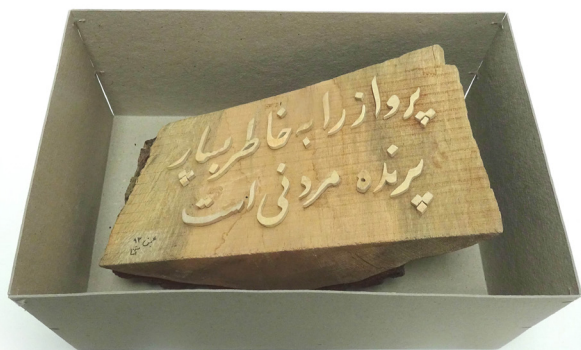 پرواز را به خاطر بسپار
پرنده مردنی است